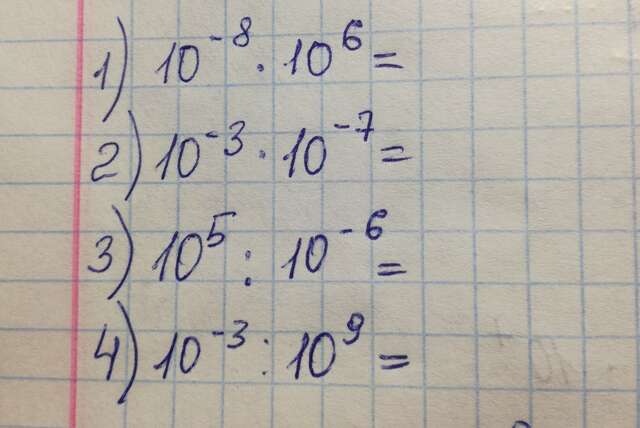 1) 10⁻⁸ · 10⁶ =
2) 10⁻³ · 10⁻⁷ =
3) 10⁵ : 10⁻⁶ =
4) 10⁻³ : 10⁹ =